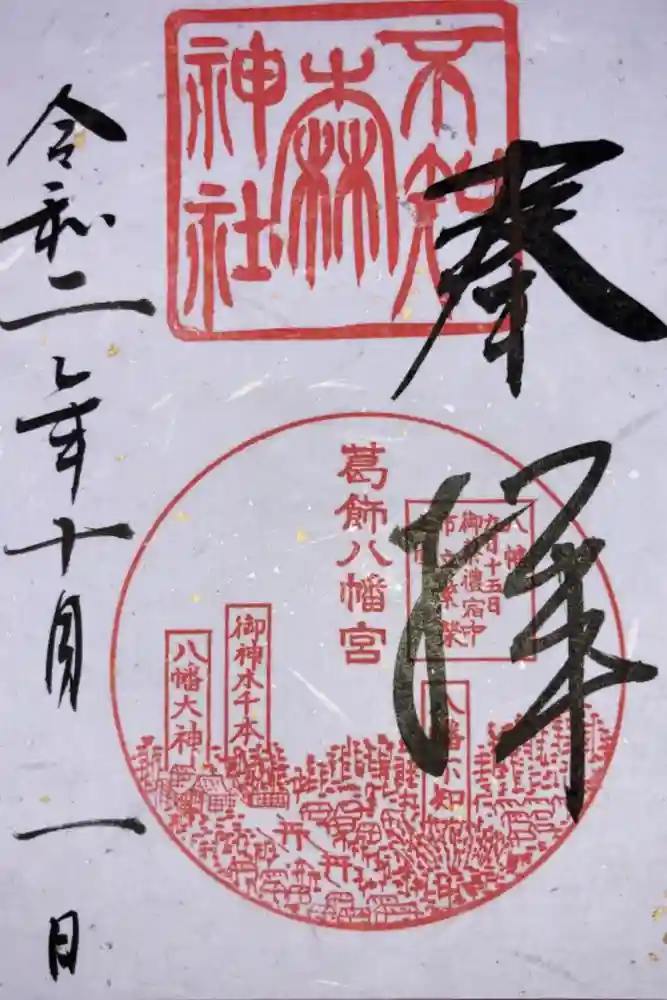 奉拝
不知
森
神社
葛飾八幡宮
八幡
九月十五日
御祭禮宿中
市立繁榮
御神木千本
八幡大神
八幡不知
令和二年十月一日